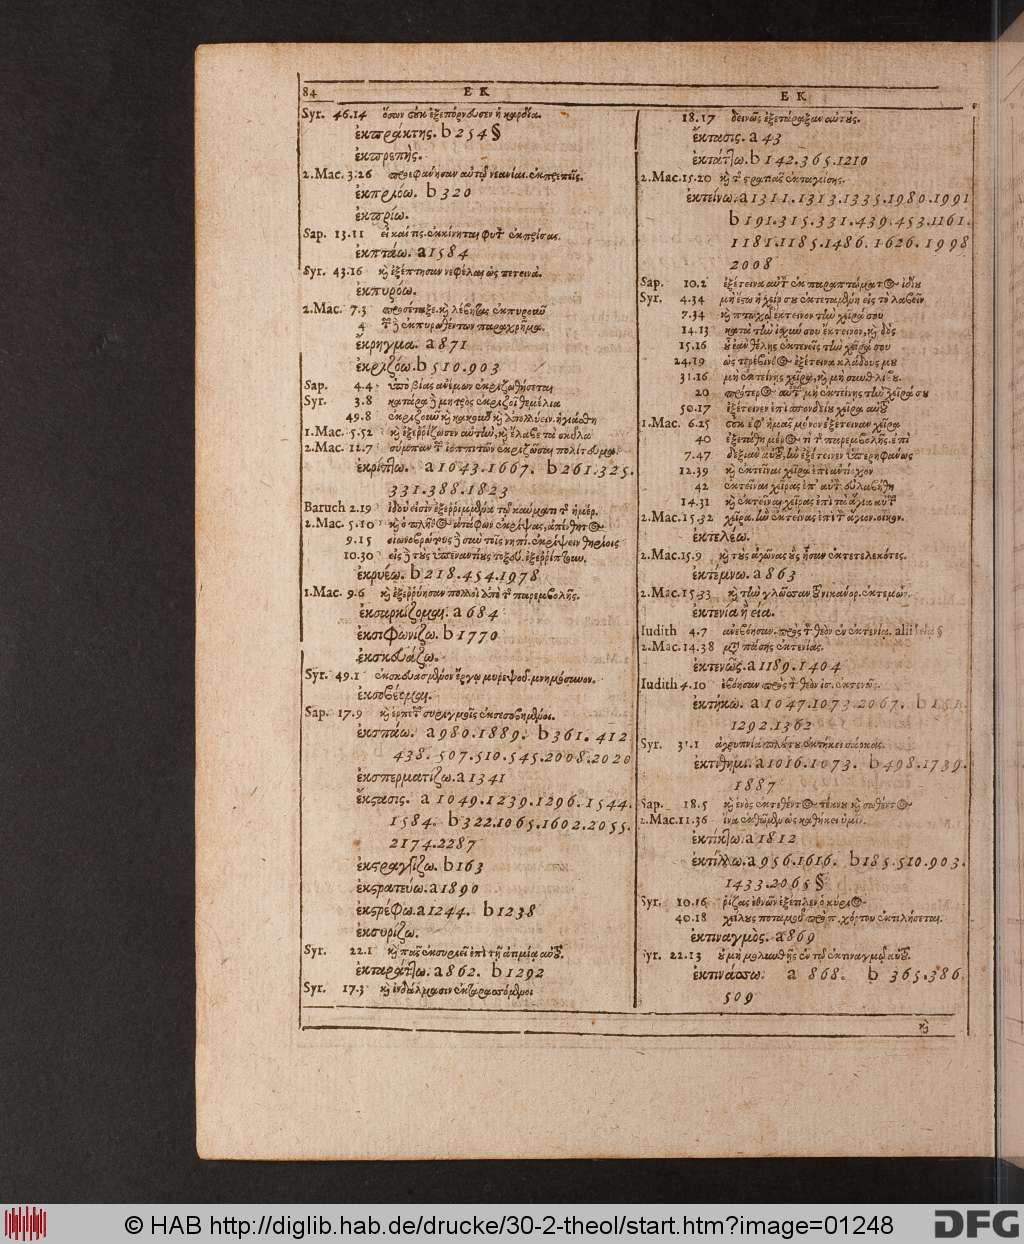 84 E K E K
Syr. 46.14 ὅσων οὐκ ἐξεπόρνευσεν ἡ καρδία.
ἐκπράκτης. b 254 §
ἐκπρεπής.
2.Mac. 3.26 προεφάνησαν αὐτῷ νεανίαι ἐκπρεπεῖς.
b 320
ἐκπρίω.
Sap. 13.11 εἰ καί τις εὐκίνηται φυτ ἐκπρίσας.
ἐκπτάω. a 1584
Syr. 43.16 κὶ ἐξέπτησαν νεφέλαι ὡς πετεινά.
ἐκπυρόω.
2.Mac. 7.3 προσέταξε κὶ λέβητας ἐκπυροῦν
4 ἐκπυρωθέντων παραχρῆμα.
ἔκρηγμα. a 871
ἐκριζόω. b 510.903
Sap. 4.4 ὑπὸ βίας ἀνέμων ἐκριζωθήσεται
Syr. 3.8 κατάρα ἢ μητρὸς ἐκριζοῖ θεμέλια
49.8 ἐκριζοῦν κὶ κακοῦν κὶ ἀπολλύειν.
1.Mac. 5.52 κὶ ἐξερρίζωσεν αὐτὴν, κὶ ἔλαβε τὰ σκῦλα
2.Mac. 12.7 σύμπαν ἰοππιτῶν ἐκριζῶσαι πολίτευμα.
ἐκρίπτω. a 1043.1667. b 261.325.
331.388.1823
Baruch 2.19 ἰδού εἰσιν ἐξερριμμένα τῷ καύματι ἡμέρ.
2.Mac. 5.10 κὶ ὁ πλῆθος ἀτάφων ἐκρίψας, ἀπένθητος
9.15 οἰωνοβρώτους σὺν τοῖς νηπί. ἐκρίψειν θηρίοις
10.30 εἰς τὺς ὑπεναντίυς τοξεύ. ἐξερρίπτουν.
ἐκρυέω. b 218.454.1978
1.Mac. 9.6 κὶ ἐξερρύησαν πολλοὶ ἀπὸ παρεμβολῆς.
ἐκσαρκίζομαι. a 684
ἐκσιφωνίζω. b 1770
ἐκσκευάζω.
Syr. 49.1 ἔργῳ μυρεψοῦ. μνημόσυνον.
ἐκσοβέομαι.
Sap. 17.9 συριγμοῖς ἐκσεσοβημένοι.
ἐκσπάω. a 980.1889. b 361.412
438.507.510.545.2008.2020
ἐκσπερματίζω. a 1341
ἔκστασις. a 1049.1239.1296.1544.
1584. b 322.1065.1602.2055.
2174.2287
ἐκστραγγίζω. b 163
ἐκστρατεύω. a 1890
ἐκστρέφω. a 1244. b 1238
ἐκσυρίζω.
Syr. 22.1 κὶ πᾶς ἐκσυριεῖ ἐπὶ τῇ ἀτιμίᾳ αὐτοῦ.
ἐκταράττω. a 862. b 1292
Syr. 17.3 κὶ ἰνδάλμασιν ἐκταρασσόμενοι
18.17 δεινῶς ἐξετάραξαν αὐτύς.
ἔκτασις. a 43
ἐκτάττω. b 142.365.1210
2.Mac. 15.20
ἐκτείνω. a 1311.1313.1335.1980.1991
b 191.315.331.439.453.1161.
1181.1185.1486.1626.1998
2008
Sap. 10.2 ἐξέτεινα αὐτ ἐκ παραπτώματος ἰδίυ
Syr. 4.34 μὴ ἔστω ἡ χείρ συ ἐκτεταμένη εἰς τὸ λαβεῖν
7.34 κὶ πτωχῷ ἔκτεινον τὴν χεῖρά σου
14.13 κατὰ τὴν ἰσχύν σου ἔκτεινον, κὶ δὸς
15.16 ὗ ἐὰν θέλῃς ἐκτενεῖς τὴν χεῖρά σου
24.19 ὡς τερέβινθος ἐξέτεινα κλάδους μυ
31.16 μὴ ἐκτείνῃς χεῖρα, κὶ μὴ συνθλίβυ.
20 μὴ ἐκτείνῃς τὴν χεῖρά συ
50.17 ἐξέτεινεν ἐπὶ σπονδείυ χεῖρα αὐτοῦ
1.Mac. 6.25 οὐκ ἐφ' ἡμᾶς μόνον ἐξέτειναν χεῖρα
40 ἐξετάθη μέρος τι παρεμβολῆς ἐπὶ
7.47 δεξιὰν αὐτοῦ, ἣν ἐξέτεινεν ὑπερηφάνως
12.39 κὶ ἐκτεῖναι χεῖρα ἐπὶ ἀντίοχον
42 ἐκτεῖναι χεῖρας ἐπ' αὐτ εὐλαβήθη
14.31 κὶ ἐκτεῖναι χεῖρας ἐπὶ τὰ ἅγια
2.Mac. 15.32 χεῖρα, ἣν ἐκτείνας ἐπὶ ἅγιον οἶκον.
ἐκτελέω.
2.Mac. 15.9 κὶ τὺς ἀγῶνας ὓς ἦσαν ἐκτετελεκότες.
ἐκτέμνω. a 863
2.Mac. 15.33 κὶ τὴν γλῶσσαν νικάνορ. ἐκτεμών.
ἐκτενία ἢ εία.
Iudith 4.7 ἀνεβόησαν πρὸς θεὸν ἐν ἐκτενίᾳ. alii §
2.Mac. 14.38 μετὰ πάσης ἐκτενίας.
ἐκτενῶς. a 1189.1404
Iudith 4.10 ἐβόησαν πρὸς θεὸν ἰσ. ἐκτενῶς.
ἐκτήκω. a 1047.1073.2067. b 151
1292.1362
Syr. 31.1 ἀγρυπνία πλούτυ ἐκτήκει σάρκας.
ἐκτίθημι. a 1016.1073. b 498.1739.
1887
Sap. 18.5 κὶ ἑνὸς ἐκτεθέντος τέκνυ κὶ σωθέντος
2.Mac. 11.36 ἵνα ἐκθῶμεν ὡς καθήκει ὑμῖν.
ἐκτίκτω. a 1812
ἐκτίλλω. a 956.1616. b 185.510.903.
1433.2065 §
Syr. 10.16 ῥίζας ἐθνῶν ἐξέτιλεν ὁ κύριος
40.18 χείλυς ποταμοῦ πρὸ π. χόρτου ἐκτιλήσεται.
ἐκτιναγμὸς. a 869
Syr. 22.13 ὐ μὴ μολυνθῇς ἐν τῷ ἐκτιναγμῷ αὐτοῦ.
ἐκτινάσσω. a 868. b 365.386.
509
κὶ
© HAB http://diglib.hab.de/drucke/30-2-theol/start.htm?image=01248
DFG